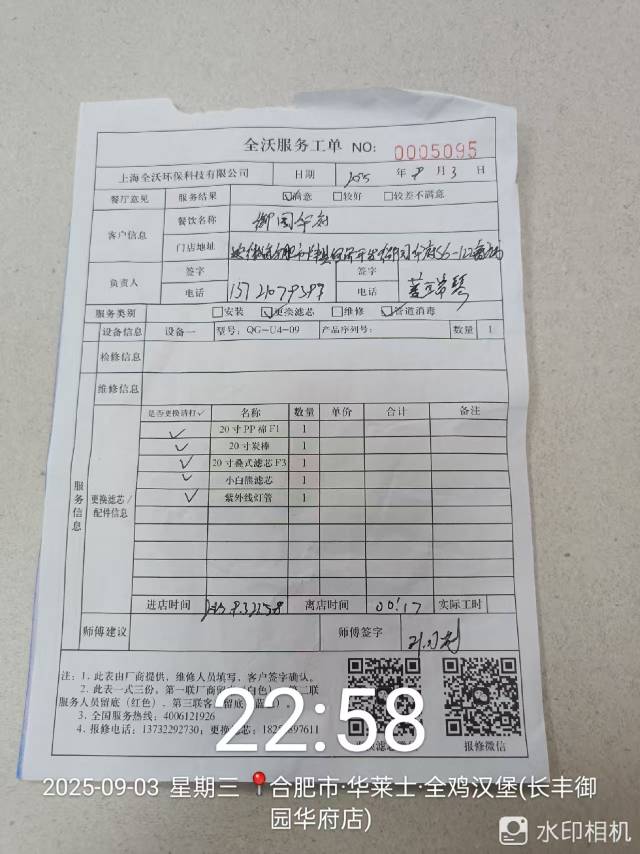 全沃服务工单 NO: 0005095
上海全沃环保科技有限公司 日期 2025 年 9 月 3 日
餐厅意见 服务结果 ☑满意 □较好 □较差不满意
客户信息 餐饮名称 御园华府
门店地址
负责人 签字 签字
电话 电话
服务类别 □安装 ☑更换滤芯 □维修 ☑管道消毒
设备信息 设备一 型号: QG-U4-09 产品序列号: 数量 1
检修信息
维修信息
服务信息 更换滤芯/配件信息
是否更换请打✓ 名称 数量 单价 合计 备注
✓ 20寸PP棉F1 1
✓ 20寸炭棒 1
✓ 20寸叠式滤芯F3 1
✓ 小白熊滤芯 1
✓ 紫外线灯管 1
进店时间 离店时间 00:17 实际工时
师傅建议 师傅签字
注: 1. 此表由厂商提供, 维修人员填写, 客户签字确认。
2. 此表一式三份, 第一联厂商留
服务人员留底(红色), 第三联客
3. 全国服务热线: 4006121926
4. 报修电话: 13732292730; 更换
报修微信
22:58
2025-09-03 星期三 合肥市·华莱士·全鸡汉堡(长丰御
园华府店)
水印相机